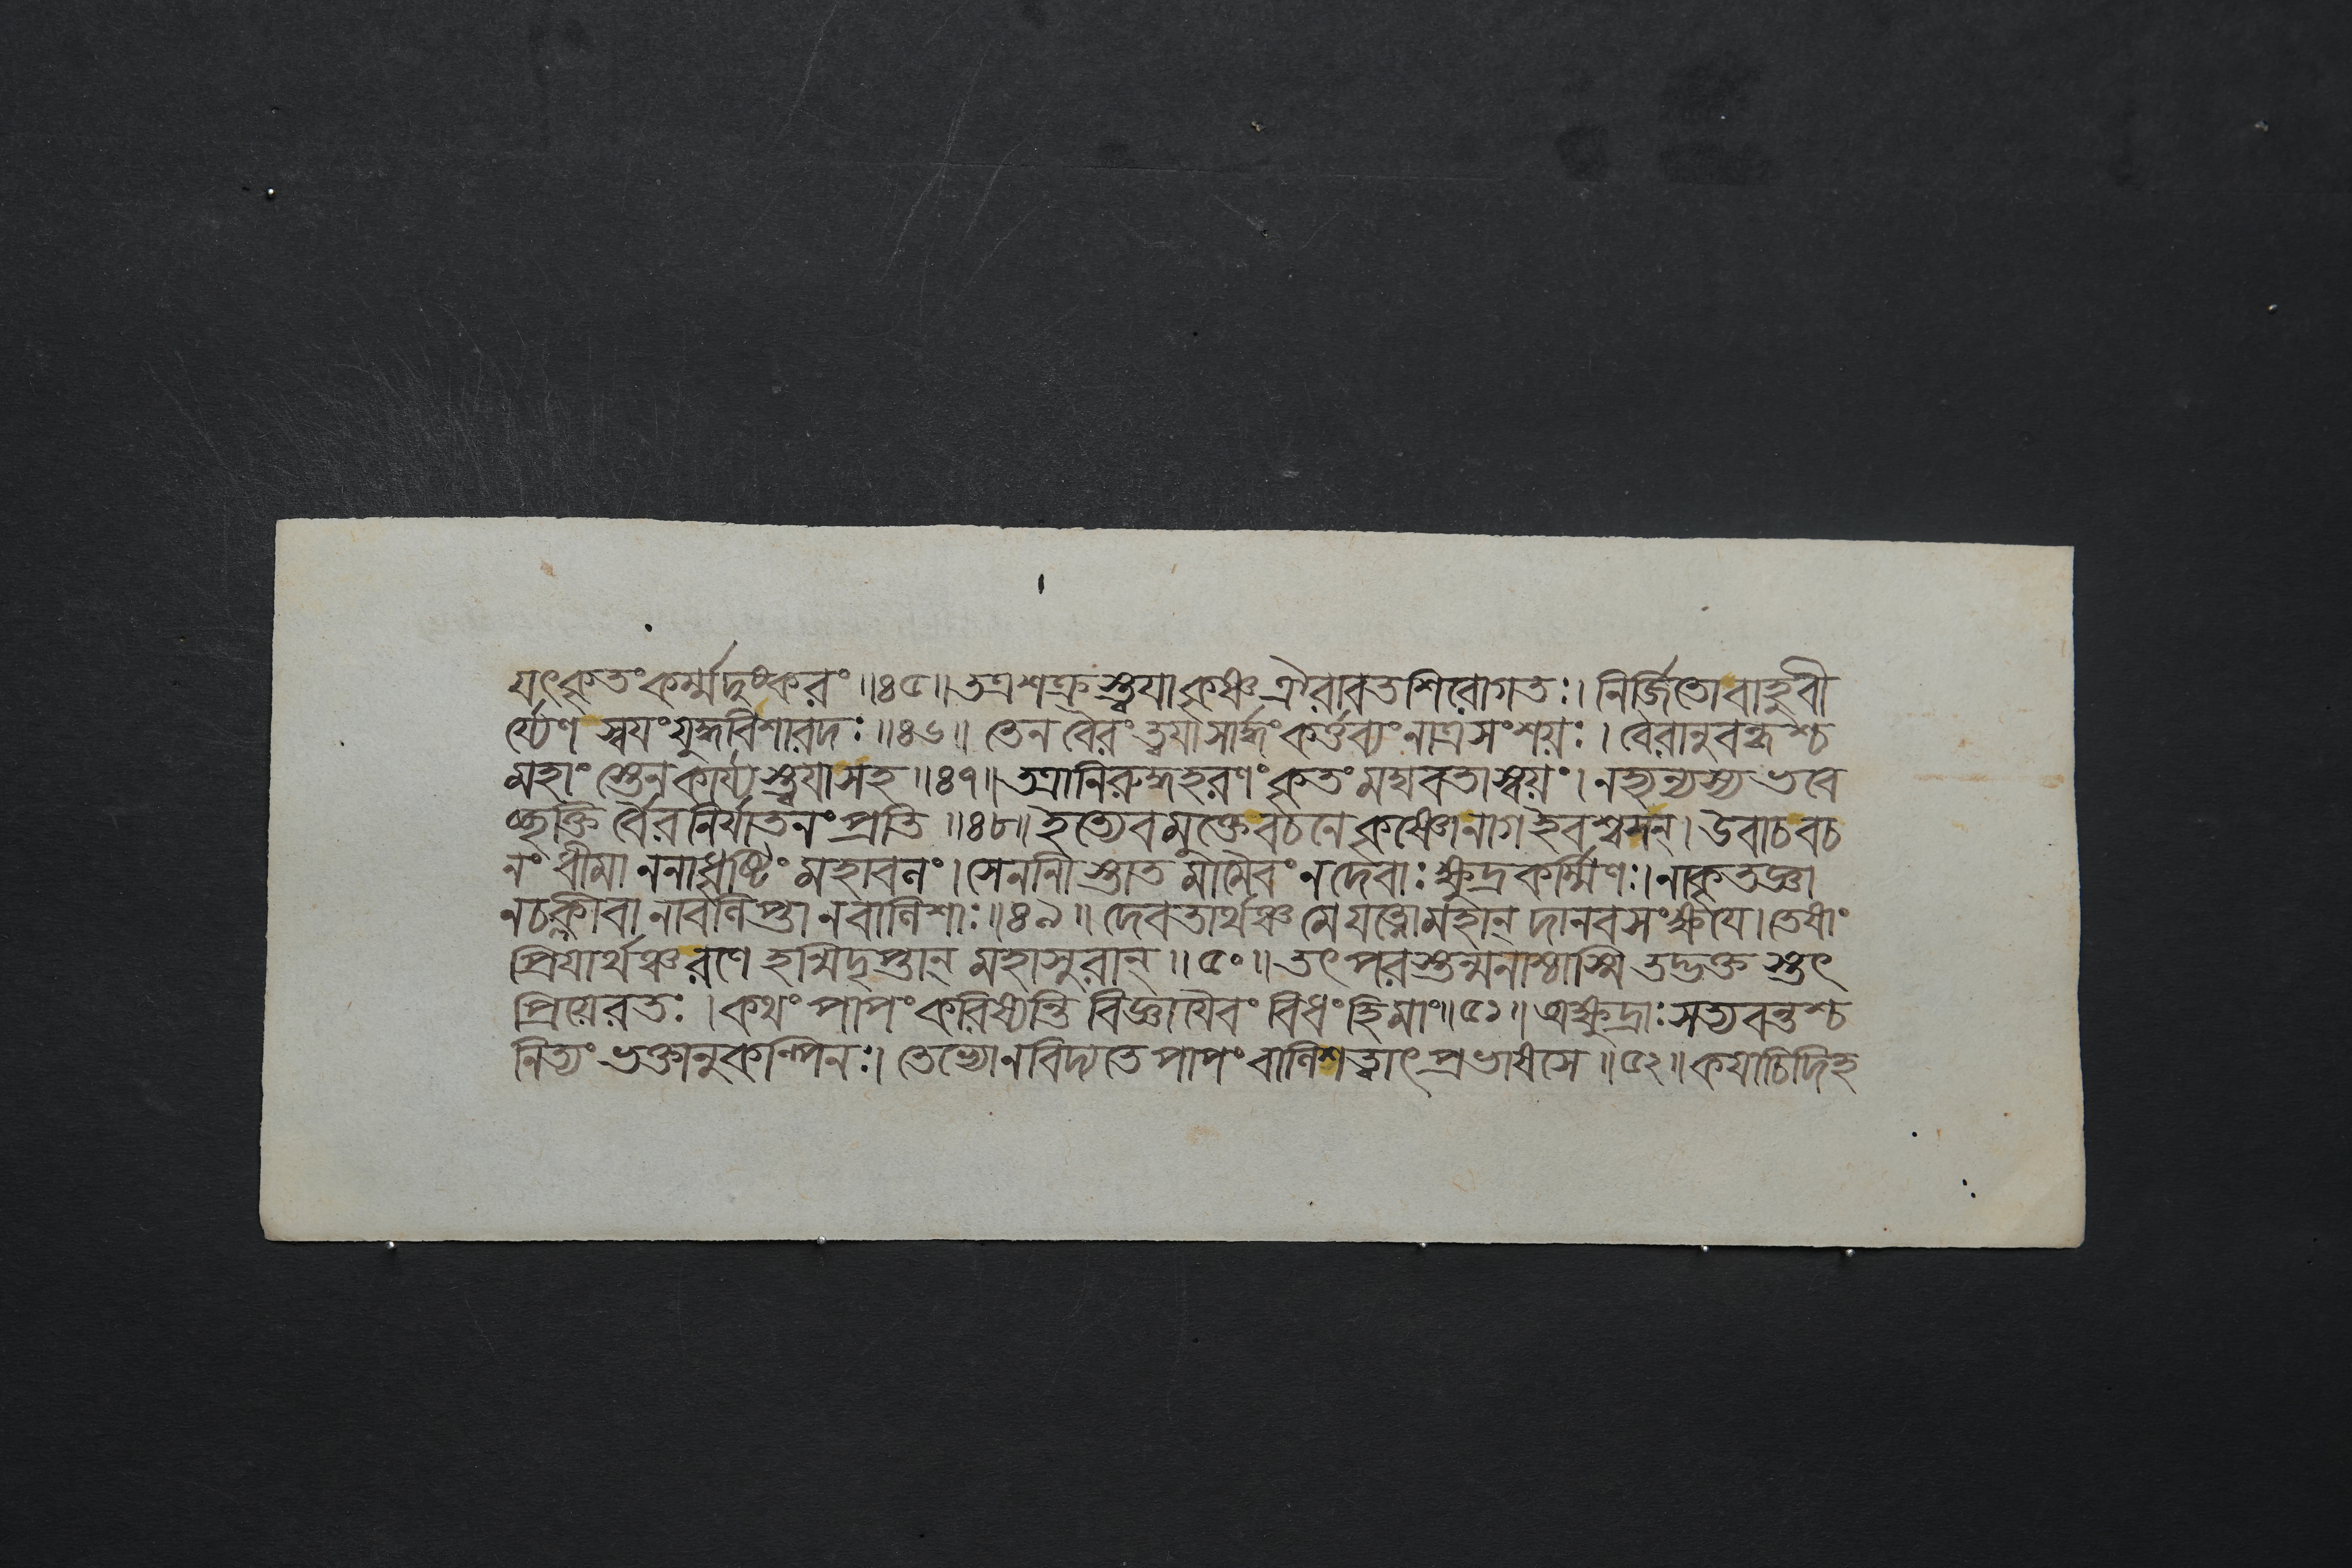 যৎকৃতংকর্ম্মদুষ্করং॥৪৫॥তত্রশক্রস্ত্বয়াকৃষ্ণঐরাবতশিরোগতঃ।নির্জিতোবাহুবী
র্য্যেণস্বয়ংযুদ্ধবিশারদঃ॥৪৬॥তেনবৈরংত্বয়াসার্দ্ধংকর্ত্তব্যংনাত্রসংশয়ঃ।বৈরানুবন্ধশ্চ
মহাংস্তেনকার্য্যস্ত্বয়াসহ॥৪৭॥তত্রানিরুদ্ধহরণংকৃতংমঘবতাস্বয়ং।নহ্যন্যস্যভবে
চ্ছক্তির্বৈরনির্যাতনংপ্রতি॥৪৮॥ইত্যেবমুক্তেবচনেকৃষ্ণোনাগইবশ্বসন্।উবাচবচ
নংধীমাননাধৃষ্টিংমহাবলং।সেনানীস্তাতমামৈবংনদেবাঃক্ষুদ্রকর্ম্মিণঃ।নাকৃতজ্ঞা
নচক্লীবানাবলিপ্তানবালিশাঃ॥৪৯॥দেবতার্থঞ্চমেযত্নোমহান্দানবসংক্ষয়ে।তেষাং
প্রিয়ার্থঞ্চরণেহন্মিদৃপ্তান্মহাসুরান্॥৫০॥তৎপরস্তন্মনাশ্চাস্মিতদ্ভক্তস্তৎ
প্রিয়েরতঃ।কথংপাপংকরিষ্যন্তিবিজ্ঞায়ৈবংবিধংহিমাং॥৫১॥অক্ষুদ্রাঃসত্যবন্তশ্চ
নিত্যংভক্তানুকম্পিনঃ।তেভ্যোনবিদ্যতেপাপংবালিশত্বাৎপ্রভাষসে॥৫২॥কয়াচিদিহ